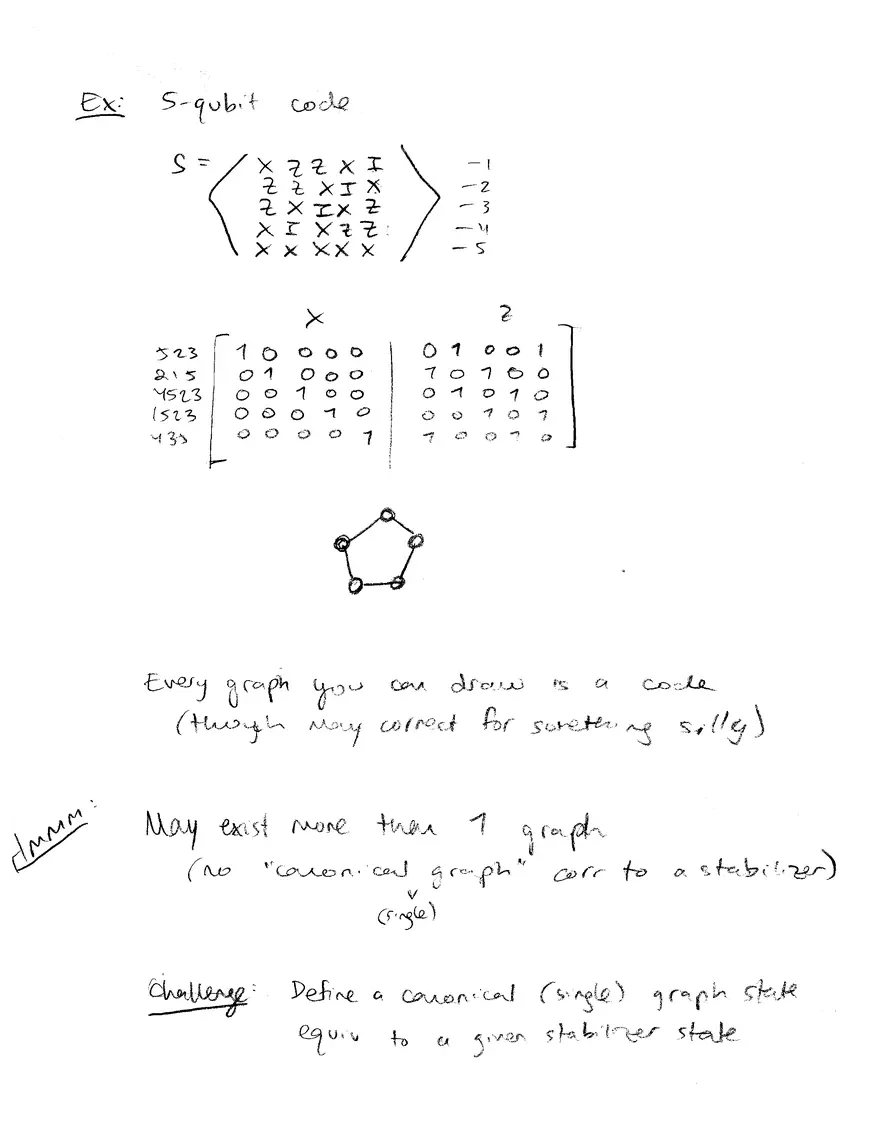 Ex: 5-qubit code
S = ⟨ X Z Z X I ⟩ -1
Z Z X I X -2
Z X I X Z -3
X I X Z Z -4
X X X X X -5
X Z
523 [ 1 0 0 0 0 | 0 1 0 0 1 ]
215 0 1 0 0 0 | 1 0 1 0 0
4523 0 0 1 0 0 | 0 1 0 1 0
1523 0 0 0 1 0 | 0 0 1 0 1
435 0 0 0 0 1 | 1 0 0 1 0
Every graph you can draw is a code
(though may correct for something silly)
May exist more than 1 graph
(no "canonical graph" corr to a stabilizer)
(single)
Challenge: Define a canonical (single) graph state
equiv to a given stabilizer state